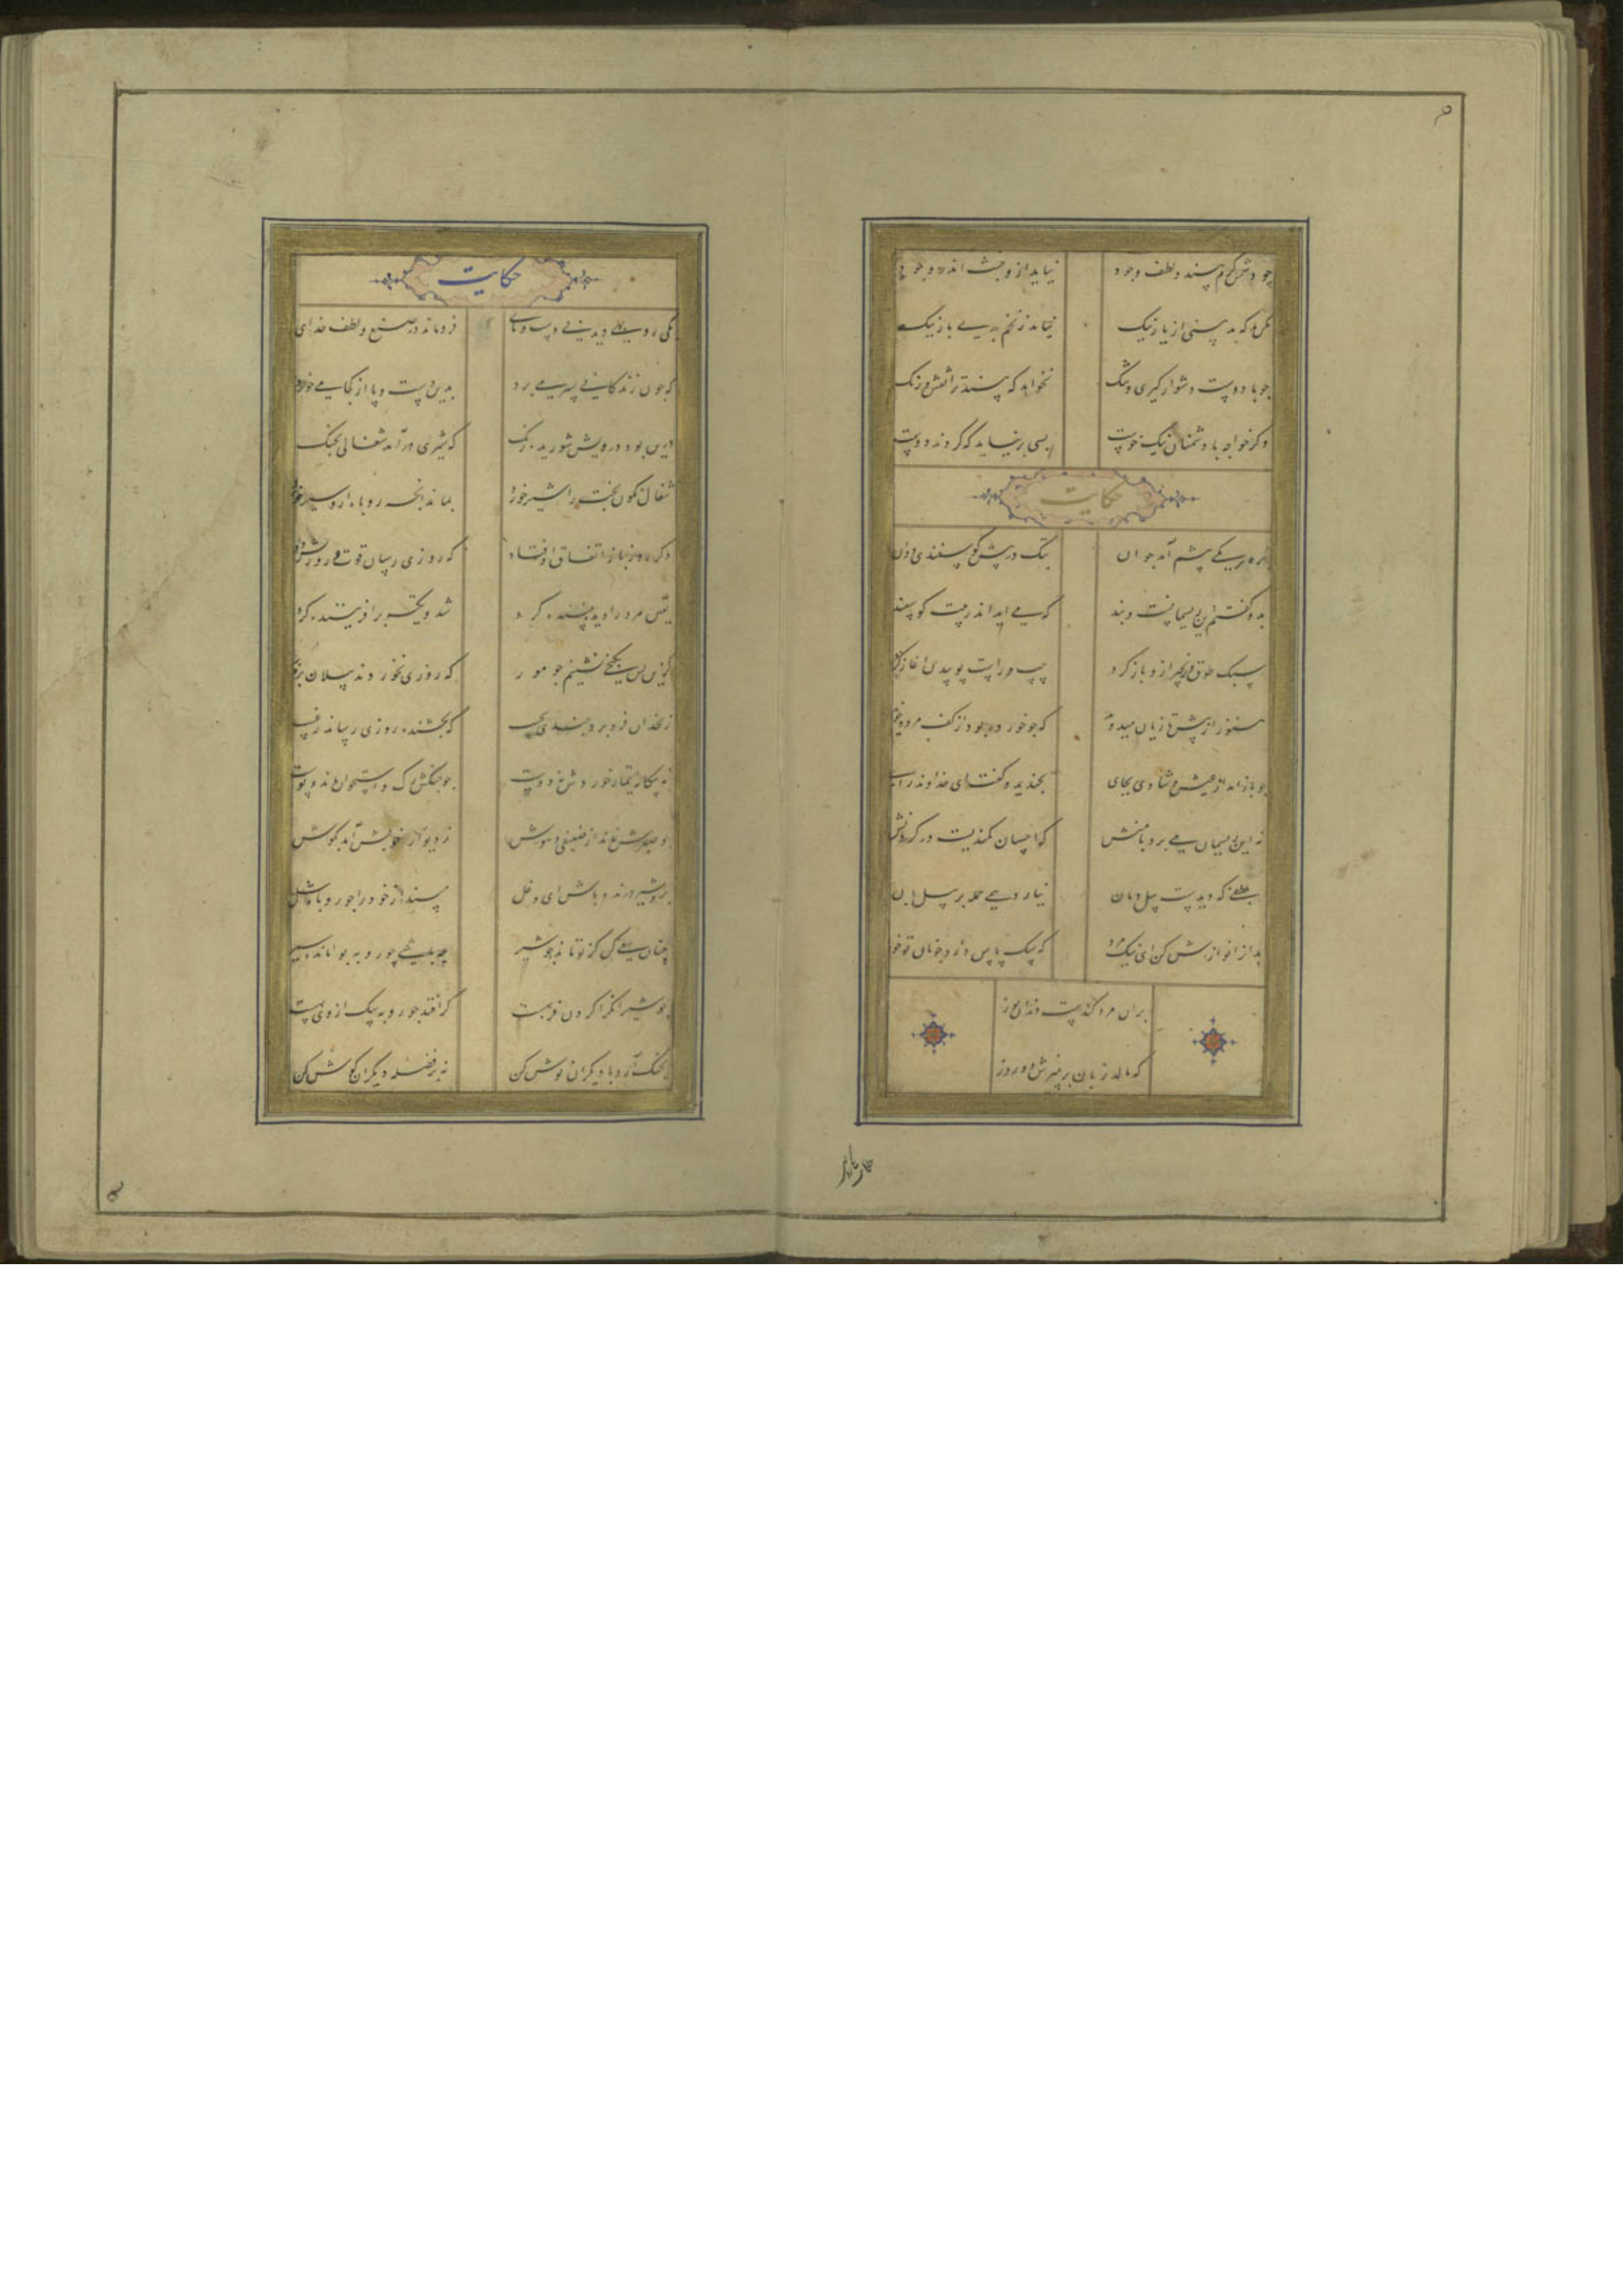 چو دشمن کرم بیند و لطف و جود نیاید ازو خبث اندر وجود
مکن بد که بد بینی از یار نیک نیاید ز تخم بدی بار نیک
چو با دوست دشوار گیری و تنگ نخواهد که بیند ترا نقش و رنگ
وگر خواجه با دشمنان نیک خوست بسی برنیاید که گردند دوست
حکایت
بره بر یکی پیشم آمد جوان بتگ در پیش گوسپندی دوان
بدو گفتم این ریسمانست و بند که می آید اندر پیت گوسپند
سبک طوق و زنجیر ازو باز کرد چپ و راست پوییدن آغاز کرد
هنوز از پیش تازیان میدوید که جو خورده بود از کف مرد و خوید
چو باز آمد از عیش و شادی بجای بخندید و گفت ای خداوند رای
نه این ریسمان می برد با منش که احسان کمندیست در گردنش
بلطفی که دیدست پیل دمان نیارد همی حمله بر پیلبان
بدان را نوازش کن ای نیک مرد که سگ پاس دارد چو نان تو خورد
بران مرد کندست دندان یوز
که مالد زبان بر پنیرش دو روز
حکایت
یکی روبهی دید بی دست و پای فروماند در صنع و لطف خدای
که چون زندگانی بسر می برد بدین دست و پا از کجا می خورد
درین بود درویش شوریده رنگ که شیری درآمد شغالی بچنگ
شغال نگون بخت را شیر خورد بماند آنچه روباه ازو سیر خورد
دگر روز باز اتفاق اوفتاد که روزی رسان قوت روزش بداد
یقین مرد را دیده بیننده کرد شد و تکیه بر آفریننده کرد
کزین پس بکنجی نشینم چو مور که روزی نخوردند پیلان بزور
زنخدان فرو برد چندی بجیب که بخشنده روزی رساند ز غیب
نه بیگانه تیمار خوردش نه دوست چو چنگش رگ و استخوان ماند و پوست
چو صبرش نماند از ضعیفی و هوش ز دیوار خویش آمد بگوش
برو شیر درنده باش ای دغل مینداز خود را چو روباه شل
چنان سعی کن کز تو ماند چو شیر چه باشی چو روبه بوامانده سیر
چو شیر آنکرا گردن فربهست گر افتد چو روبه سگ از وی بهست
بچنگ آر و با دیگران نوش کن نه بر فضله دیگران گوش کن